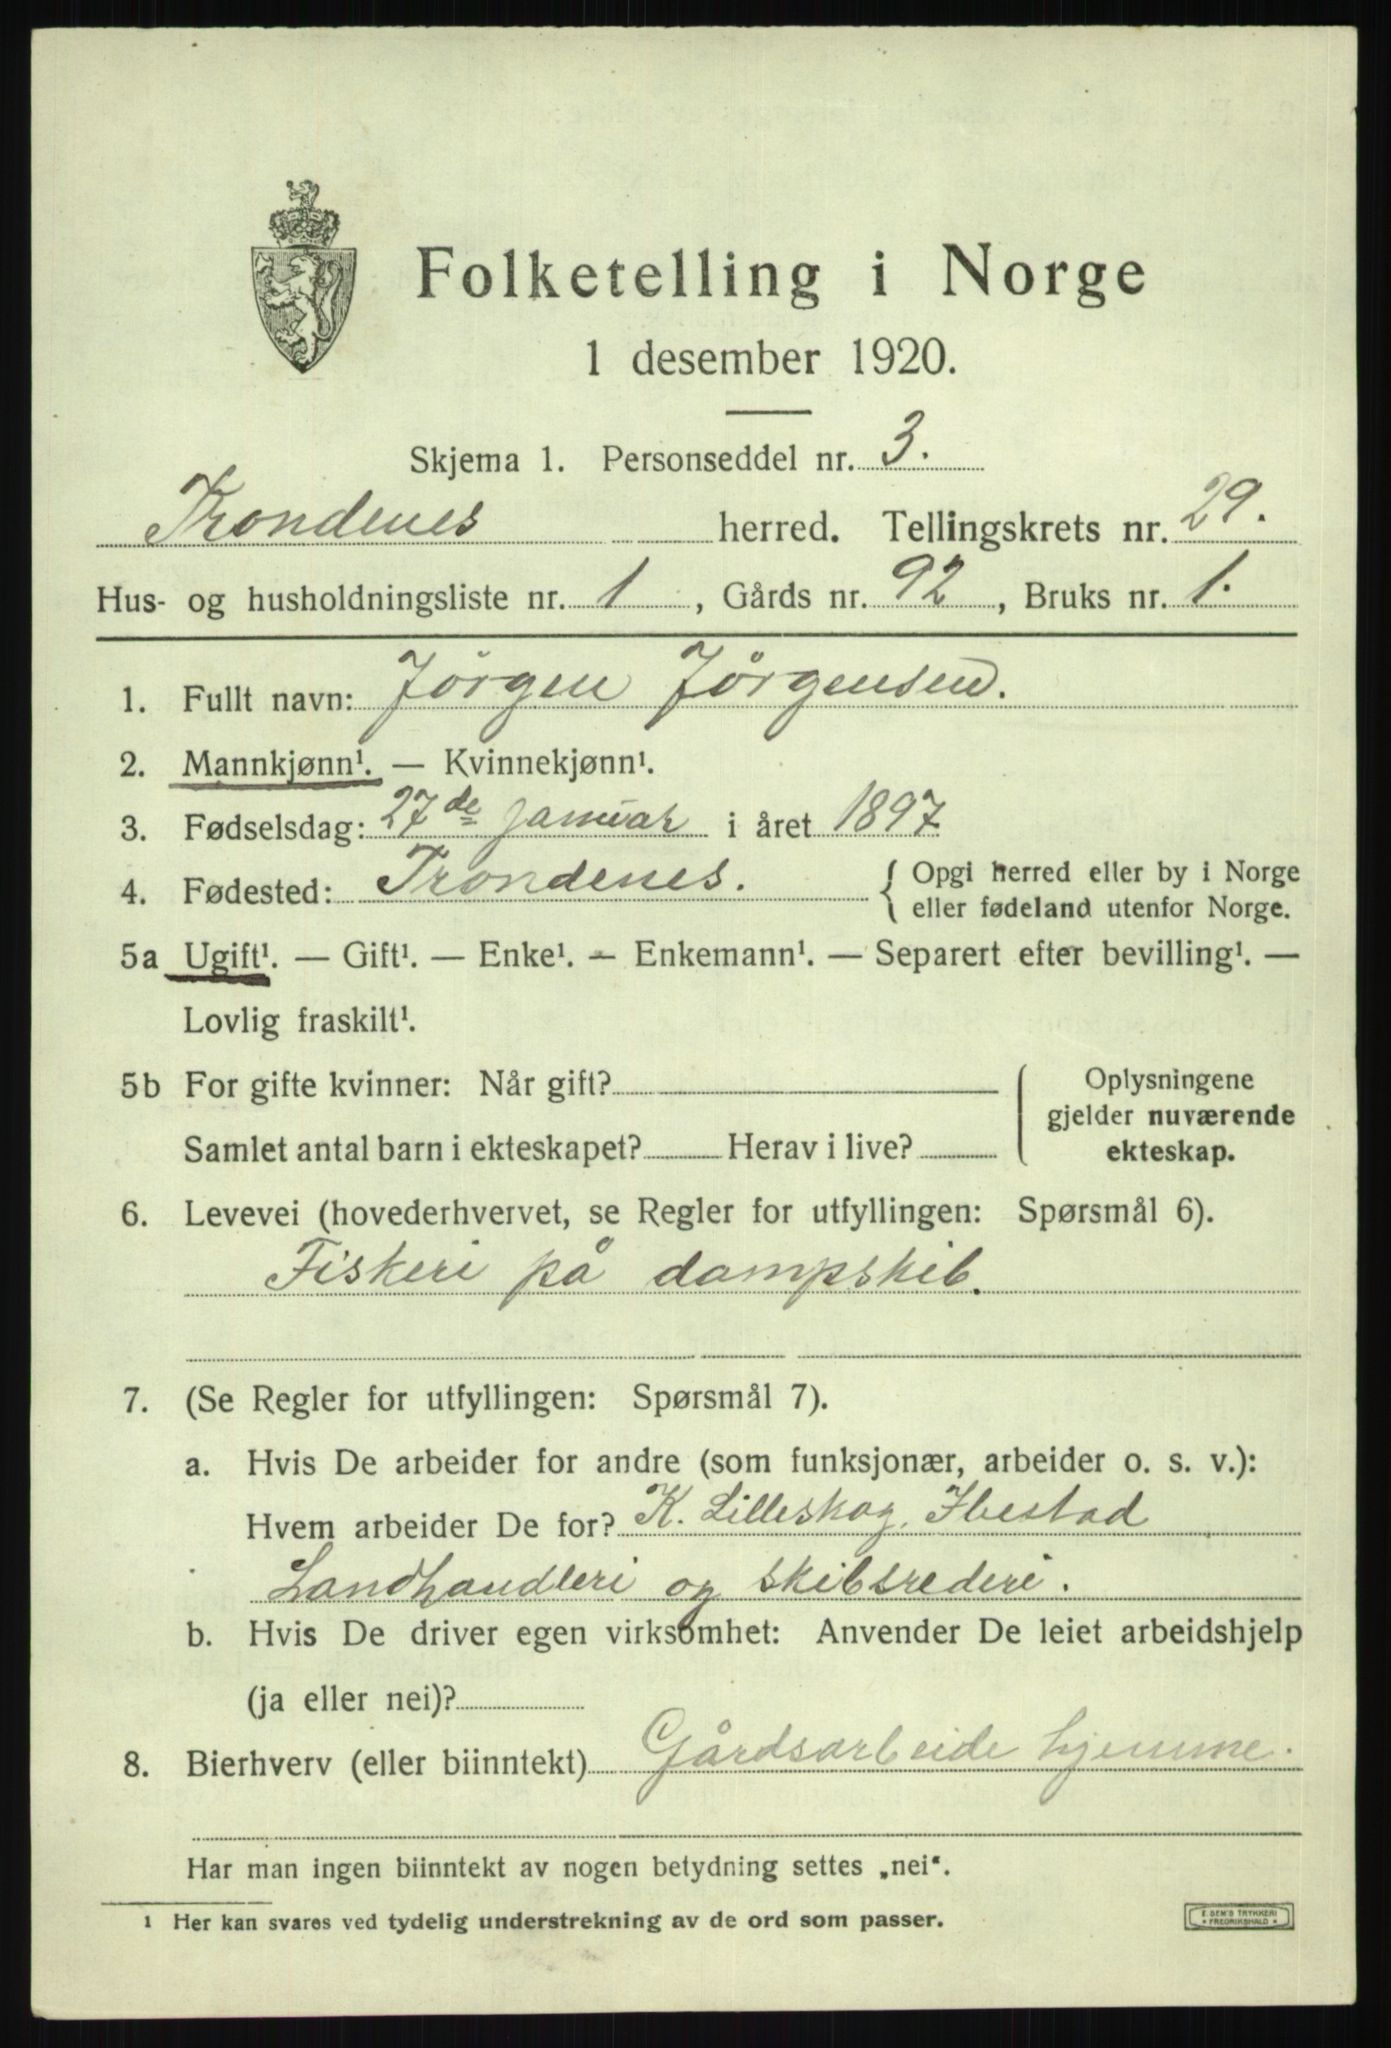 Folketelling i Norge
1 desember 1920.
Skjema 1. Personseddel nr. 3.
Trondenes herred. Tellingskrets nr. 29.
Hus- og husholdningsliste nr. 1, Gårds nr. 92, Bruks nr. 1.
1. Fullt navn: Jörgen Jörgensen.
2. Mannkjønn¹. — Kvinnekjønn¹.
3. Fødselsdag: 27de januar i året 1897
4. Fødested: Trondenes. { Opgi herred eller by i Norge
eller fødeland utenfor Norge.
5a Ugift¹. — Gift¹. — Enke¹. — Enkemann¹. — Separert efter bevilling¹. —
Lovlig fraskilt¹.
5b For gifte kvinner: Når gift?
Samlet antal barn i ekteskapet? Herav i live?
Oplysningene
gjelder nuværende
ekteskap.
6. Levevei (hovederhvervet, se Regler for utfyllingen: Spørsmål 6).
Fiskeri på dampskib.
7. (Se Regler for utfyllingen: Spørsmål 7).
a. Hvis De arbeider for andre (som funksjonær, arbeider o. s. v.):
Hvem arbeider De for? K. Lilleskog, Ibestad
Landhandleri og skibsrederi.
b. Hvis De driver egen virksomhet: Anvender De leiet arbeidshjelp
(ja eller nei)?
8. Bierhverv (eller biinntekt) Gårdsarbeide hjemme.
Har man ingen biinntekt av nogen betydning settes „nei“.
¹ Her kan svares ved tydelig understrekning av de ord som passer.
E. SEM'S TRYKKERI
FREDRIKSHALD